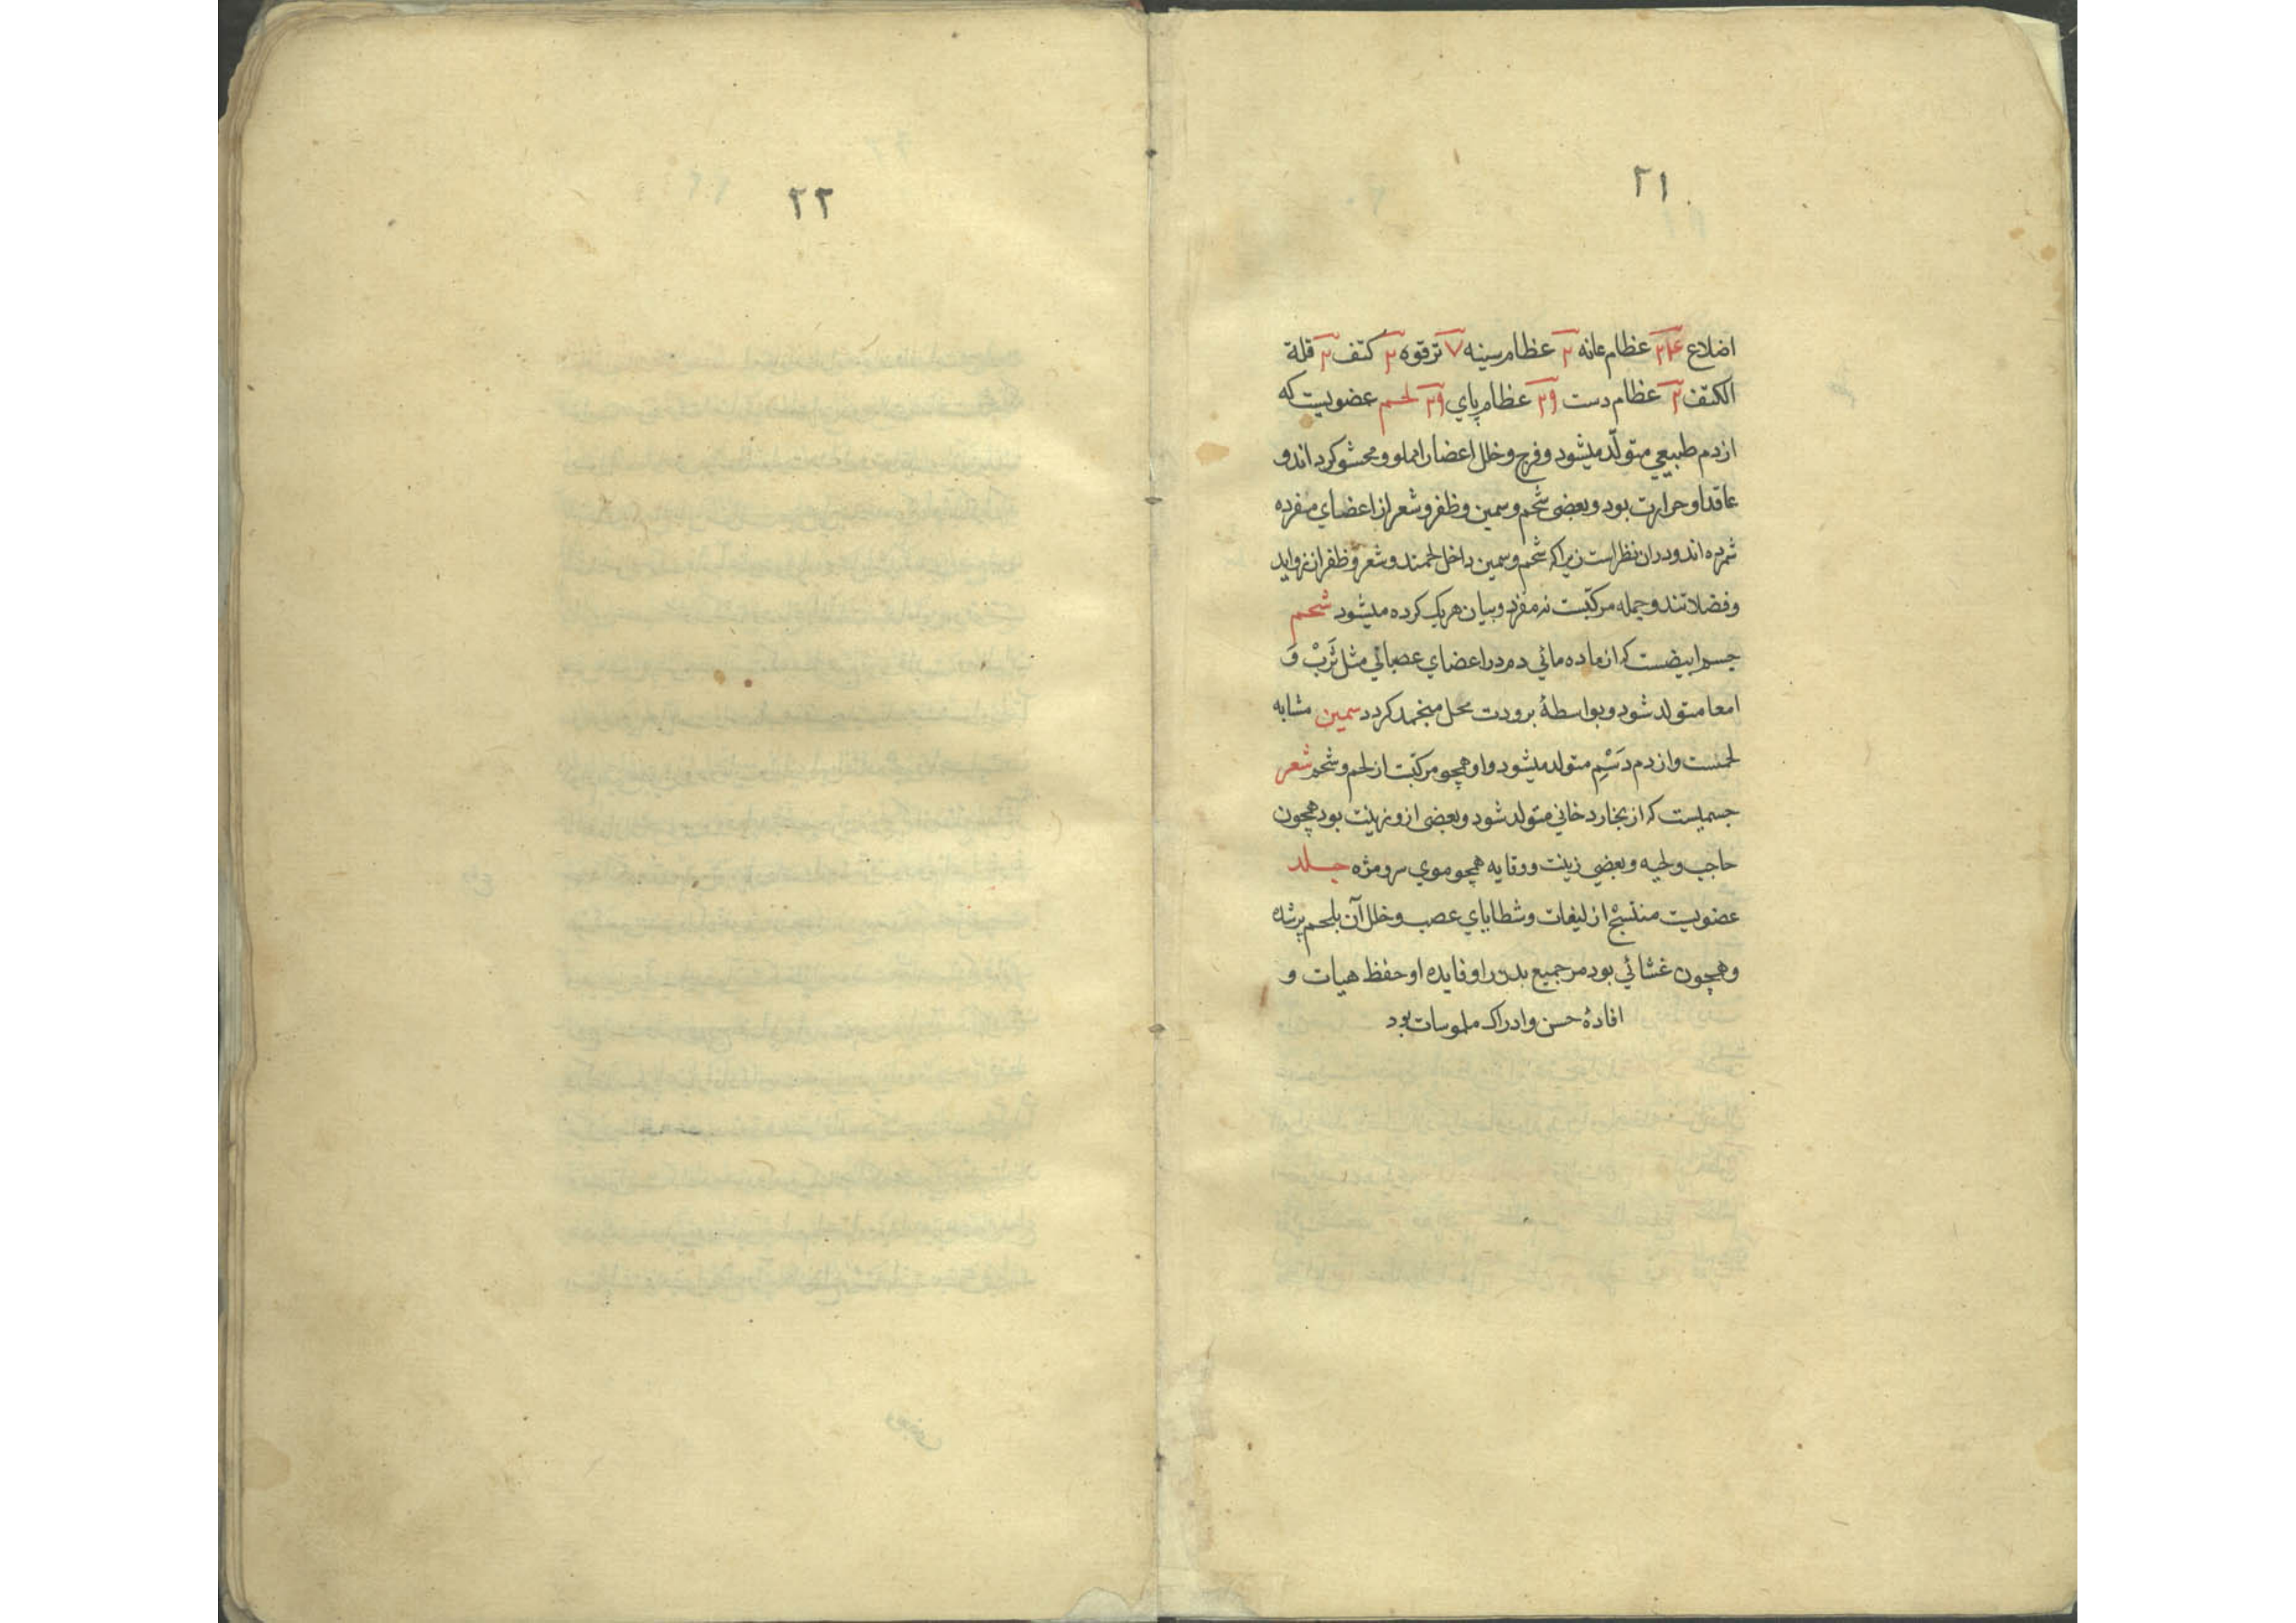 ٢١
اضلاع ٢٤ عظام عانه ٢ عظام سینه ٧ ترقوه ٢ کتف ٢ قلة
الکتف ٢ عظام دست عظام پاي لحم عضویست که
از دم طبیعي متولّد میشود و فرج و خلل اعضا را مملو و محشو کرده اند و
عاقد او حرارت بود و بعضی شحم و سمین و ظفر و شعر از اعضاي منفرده
شمرده اند و در ان نظر است زیرا که شحم و سمین داخل لحمند و شعر و ظفر از زواید
و فضلاتند و جمله مرکبّست نه مفرد و بیان هر یک کرده میشود شحم
جسم ابیضست که از ماده مائي دم در اعضاي عصباني مثل ثَربْ وَ
امعا متولد شود و بواسطۀ برودت محل منجمد کردد سمین مشابه
لحمست و از دم دَسْمِ متولد میشود و او همچو مرکبّست از لحم و شحم شعر
جسمیست که از بخار دخاني متولد شود و بعضی از و زینت بود همچون
حاجب و لحیه و بعضي زینت و وقایه همچو موي سر و مژه جلد
عضویست منتسج از لیفات و شظایاي عصب و خلل آن بلحم پر شده
و همچون غشائي بود مر جمیع بدن را و فایده او حفظ هیات و
افادۀ حسن و ادراک ملموسات بود
٢٢